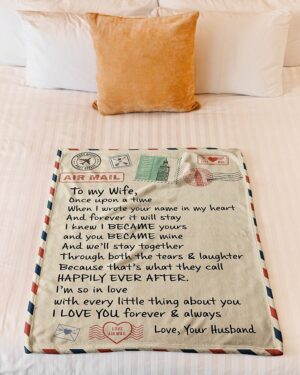 AIR MAIL
To my Wife,
Once upon a time
When I wrote your name in my heart
And forever it will stay
I knew I BECAME yours
and you BECAME mine
And we'll stay together
Through both the tears & laughter
Because that's what they call
HAPPILY EVER AFTER.
I'm so in love
with every little thing about you
I LOVE YOU forever & always
Love, Your Husband
LOVE
AIR MAIL